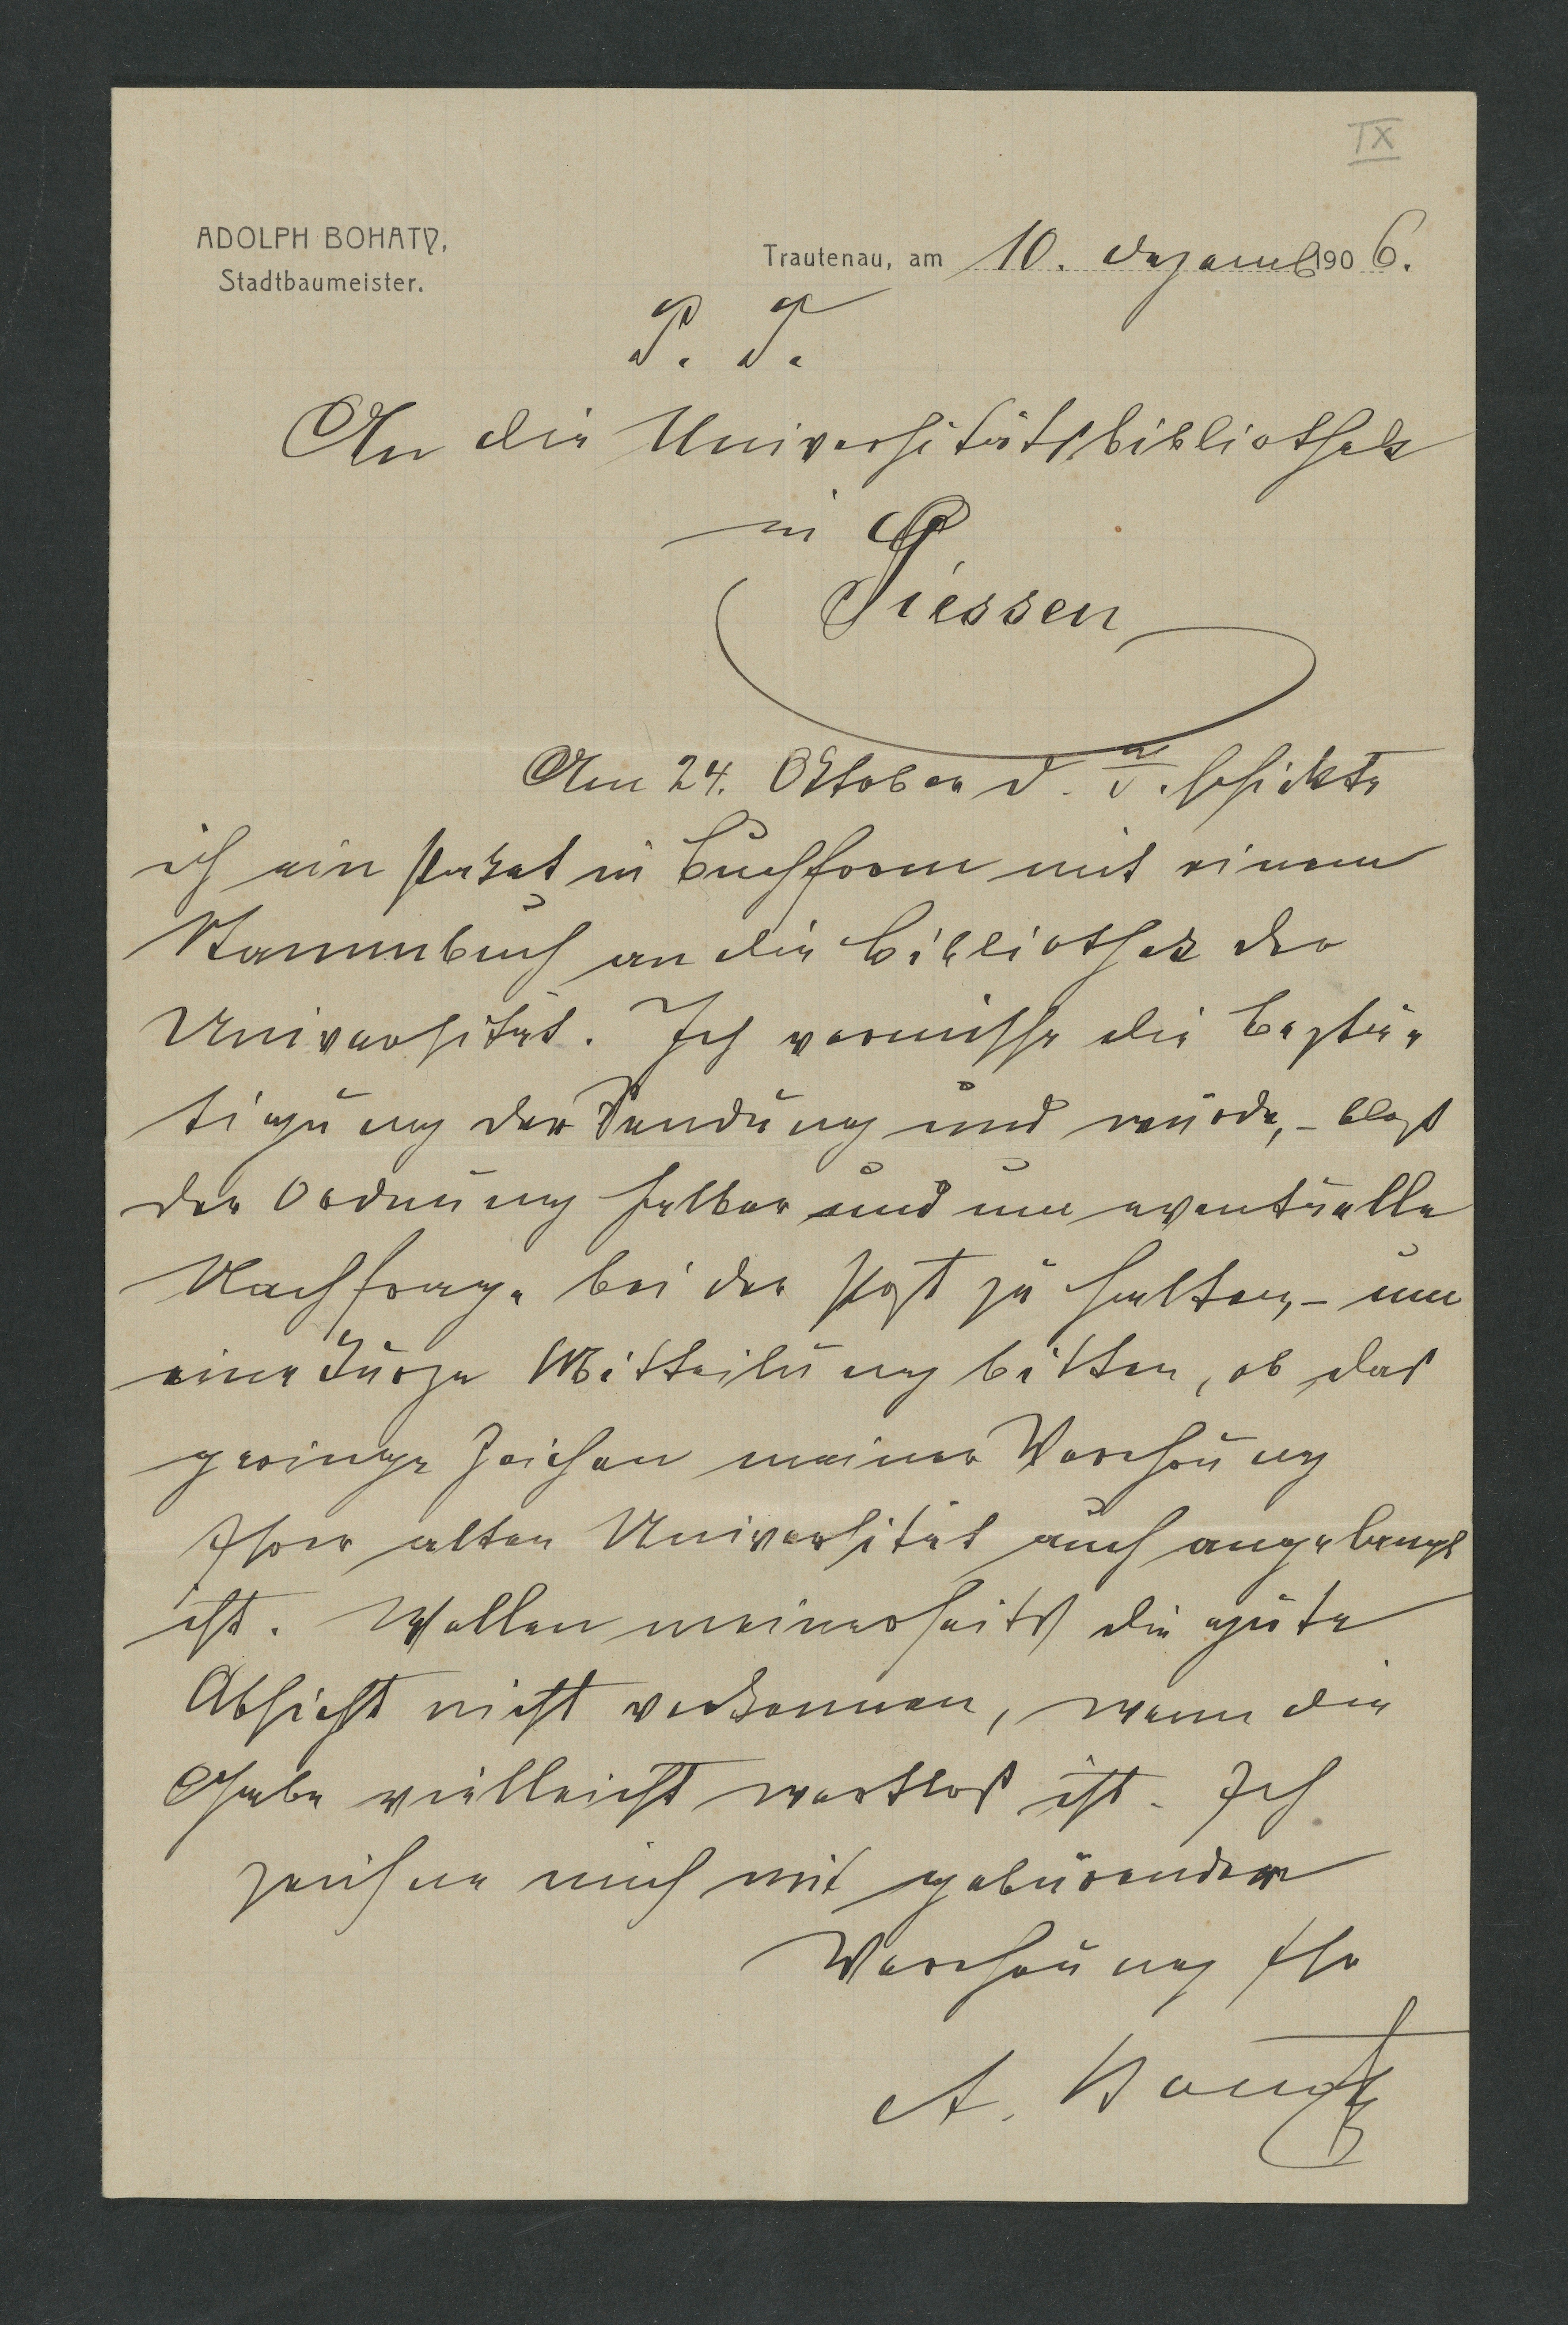 IX
ADOLPH BOHATY,
Stadtbaumeister.
Trautenau, am 10. Dezemb 1906.
P. T.
An die Universitätsbibliothek
in
Giessen
Am 24. Oktober d. J. schickte
ich ein Paket in Buchform mit einem
Stammbuch an die Bibliothek der
Universität. Ich vermisse die Bestä-
tigung der Sendung und würde, – blos
der Ordnung halber und um eventuelle
Nachfrage bei der Post zu halten, – um
eine kurze Mitteilung bitten, ob das
geringe Zeichen meiner Verehrung
Ihrer alten Universität auch angelangt
ist. Wollen meinerseits die gute
Absicht nicht verkennen, wenn die
Gabe vielleicht wertlos ist. Ich
zeichne mich mit gebürender
Verehrung Ihr
A.